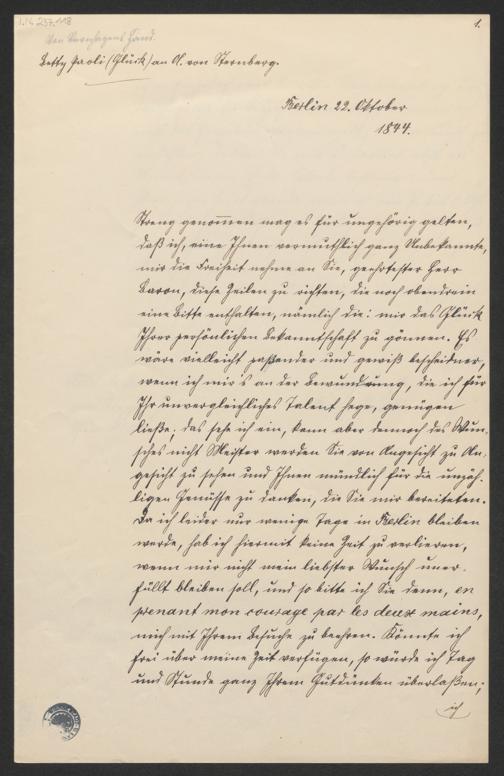 I.N. 237.118
1.
Von Varnhagens Hand.
Betty Paoli (Glück) an A. von Sternberg.
Berlin 22. Oktober
1844.
Streng genommen mag es für ungehörig gelten,
daß ich, eine Ihnen vermuthlich ganz Unbekannte,
mir die Freiheit nehme an Sie, geehrtester Herr
Baron, diese Zeilen zu richten, die noch obendrein
eine Bitte enthalten, nämlich die: mir das Glück
Ihrer persönlichen Bekanntschaft zu gönnen. Es
wäre vielleicht paßender und gewiß bescheidner,
wenn ich mir's an der Bewunderung, die ich für
Ihr unvergleichliches Talent hege, genügen
ließe; das sehe ich ein, kann aber dennoch des Wun-
sches nicht Meister werden Sie von Angesicht zu An-
gesicht zu sehen und Ihnen mündlich für die unzäh-
ligen Genüsse zu danken, die Sie mir bereiteten.
Da ich leider nur wenige Tage in Berlin bleiben
werde, hab ich hiermit keine Zeit zu verlieren,
wenn mir nicht mein liebster Wunsch uner-
füllt bleiben soll, und so bitte ich Sie denn, en
prenant mon courage par les deux mains,
mich mit Ihrem Besuche zu beehren. Könnte ich
frei über meine Zeit verfügen, so würde ich Tag
und Stunde ganz Ihrem Gutdünken überlaßen;
ich